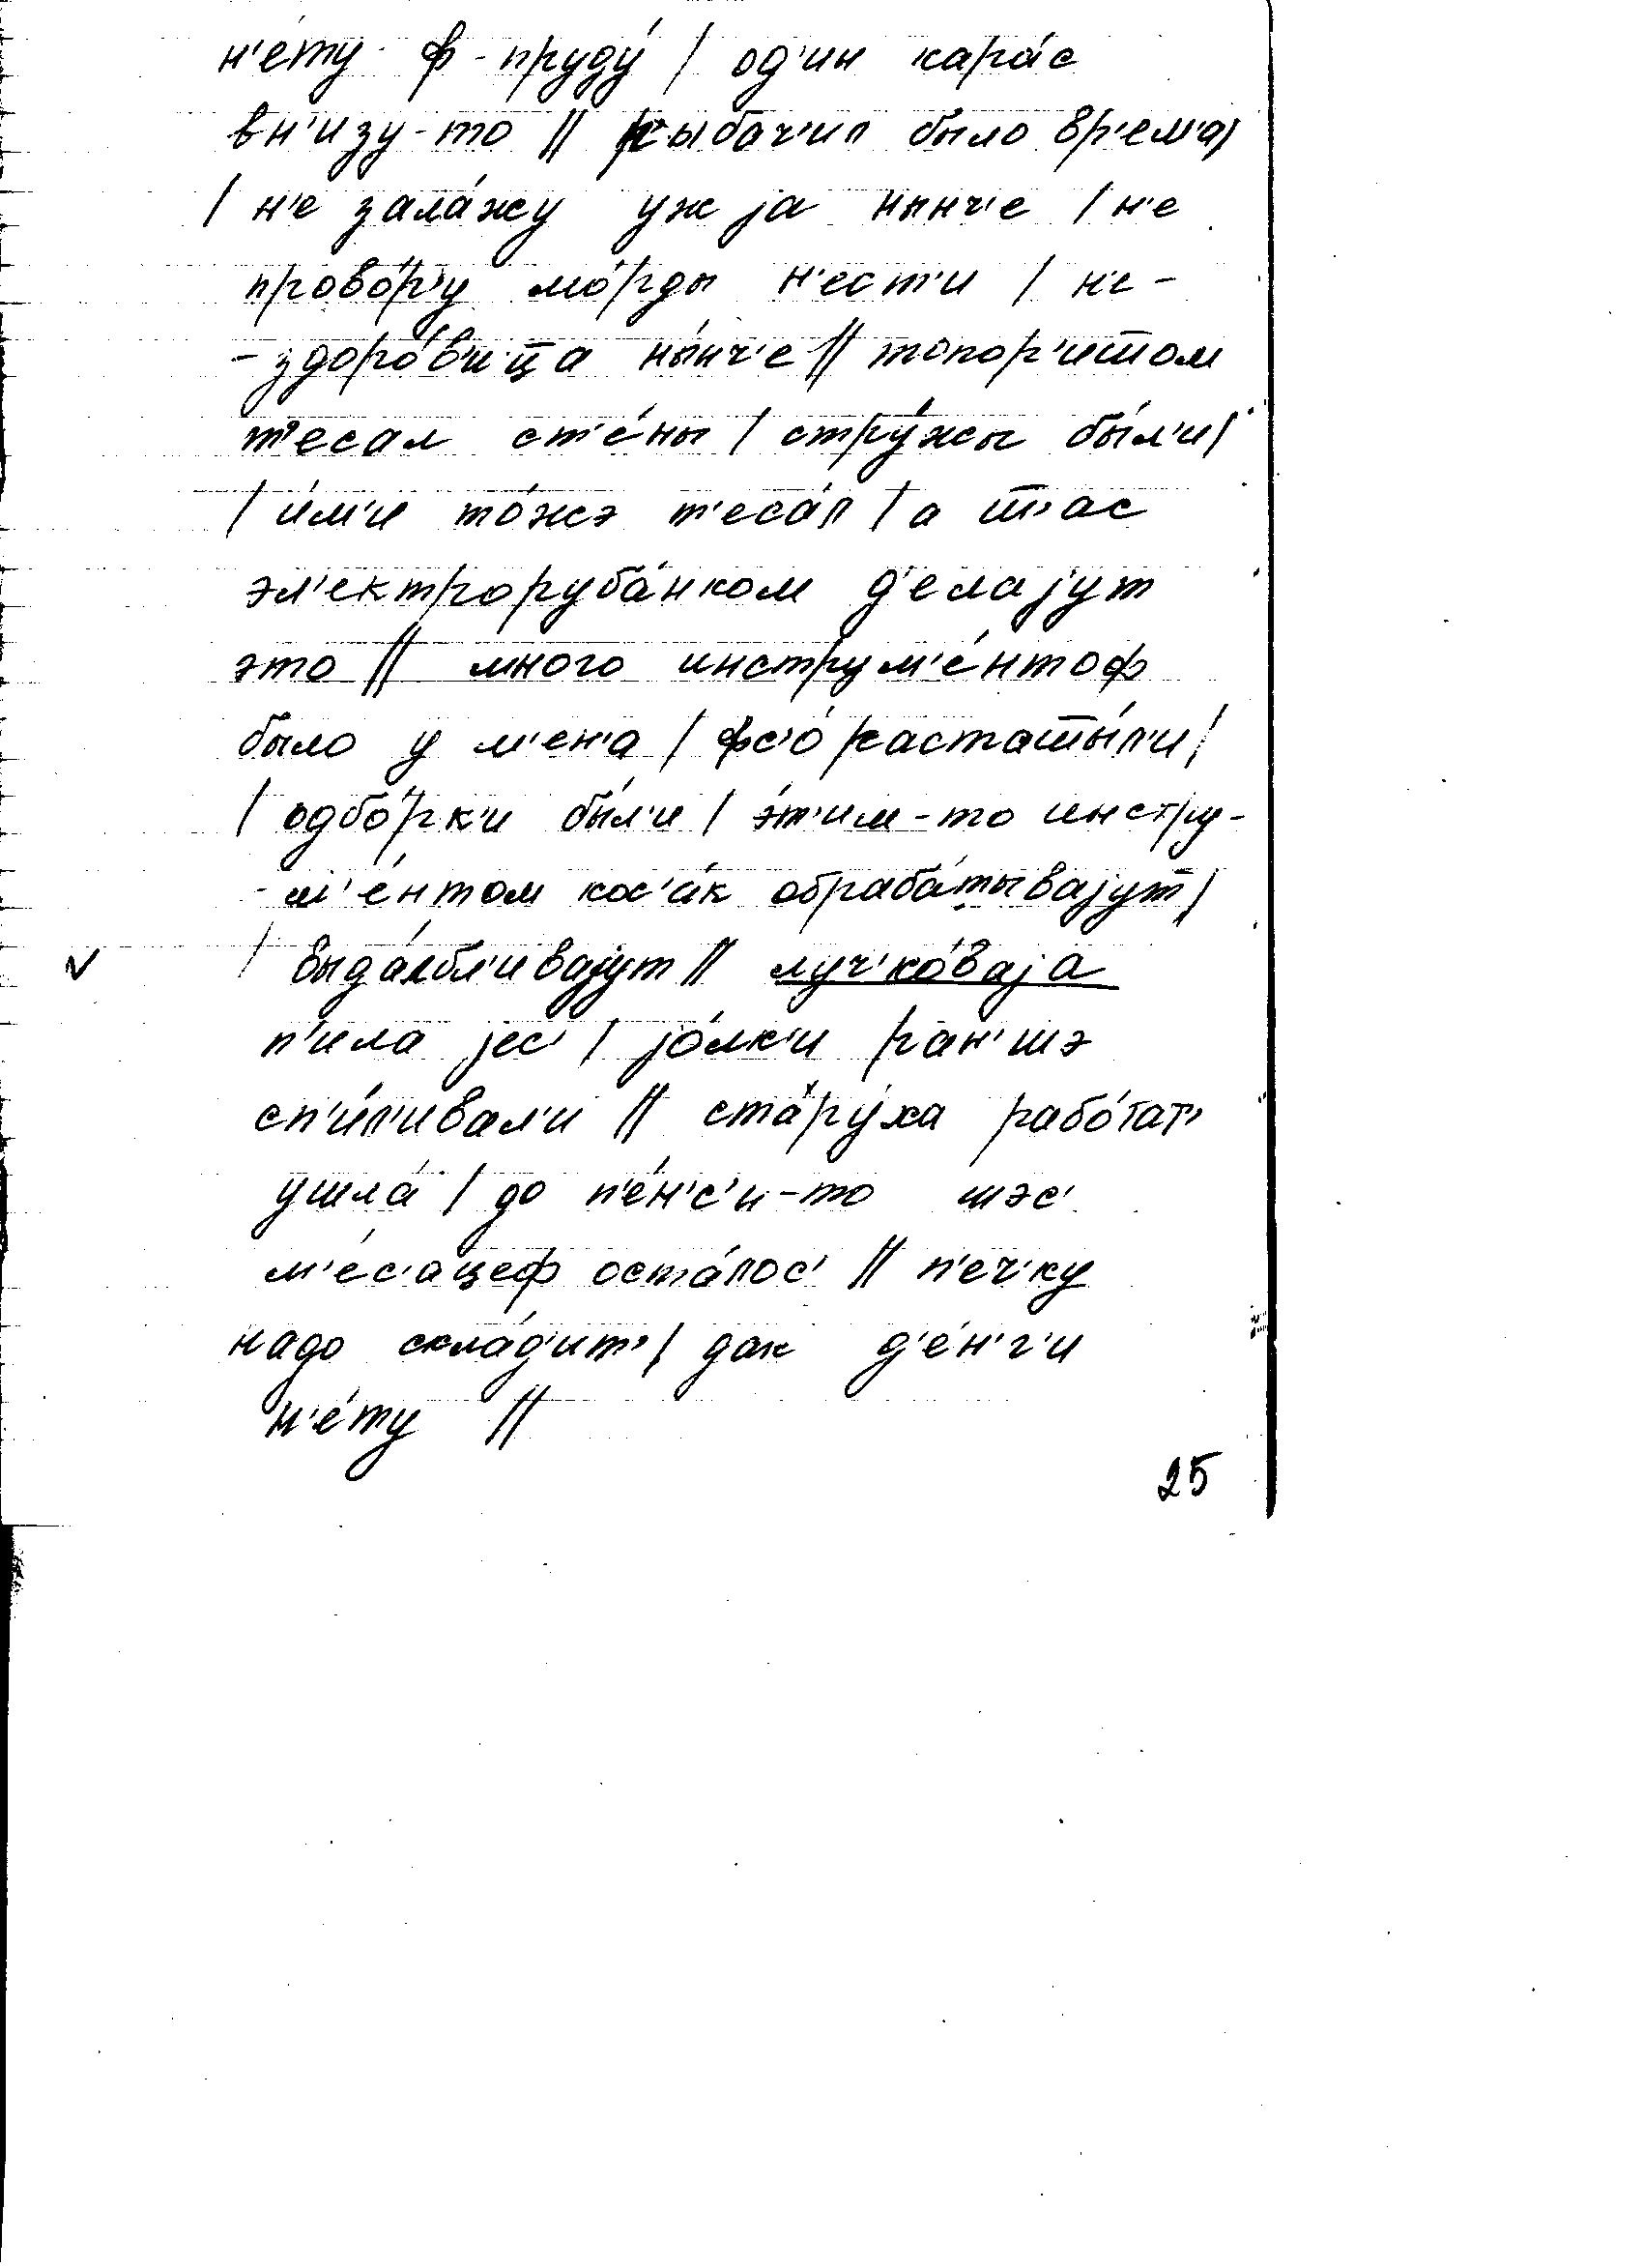 н'ету ф-пруду́ / од'ин кара́с
вн'изу-то // рыбач'ил бы́ло вр'ем'а/
/ н'е зала́жу уж jа нынч'е / н'е
прово́р'у мо́рды н'ест'и / н'е-
-здоро́в'иц̅а ны́нч'е // топор'ишом
т'есал ст'е́ны / стру́жы бы́л'и/
/ и́м'и то́жэ т'еса́л / а т̅'ас
эл'ектроруба́нком д'елаjут
это // много инструм'е́нтоф
было у м'ен'а / фс'о́ растат̅ы́л'и/
/ одбо́рк'и бы́л'и / э́т'им-то инстру-
-м'е́нтом кос'а́к обраба́тываjут/
/ выда́лбл'иваjут // луч'ко́ваjа
п'ила jес' / jо́лк'и ран'шэ
сп'и́л'ивал'и // стару́ха рабо́тат'
ушла́ / до п'е́н'с'и-то шэс'
м'е́с'ацеф оста́лос' // п'еч'ку
надо скла́д'ит' / дак д'е́н'г'и
н'е́ту //
25